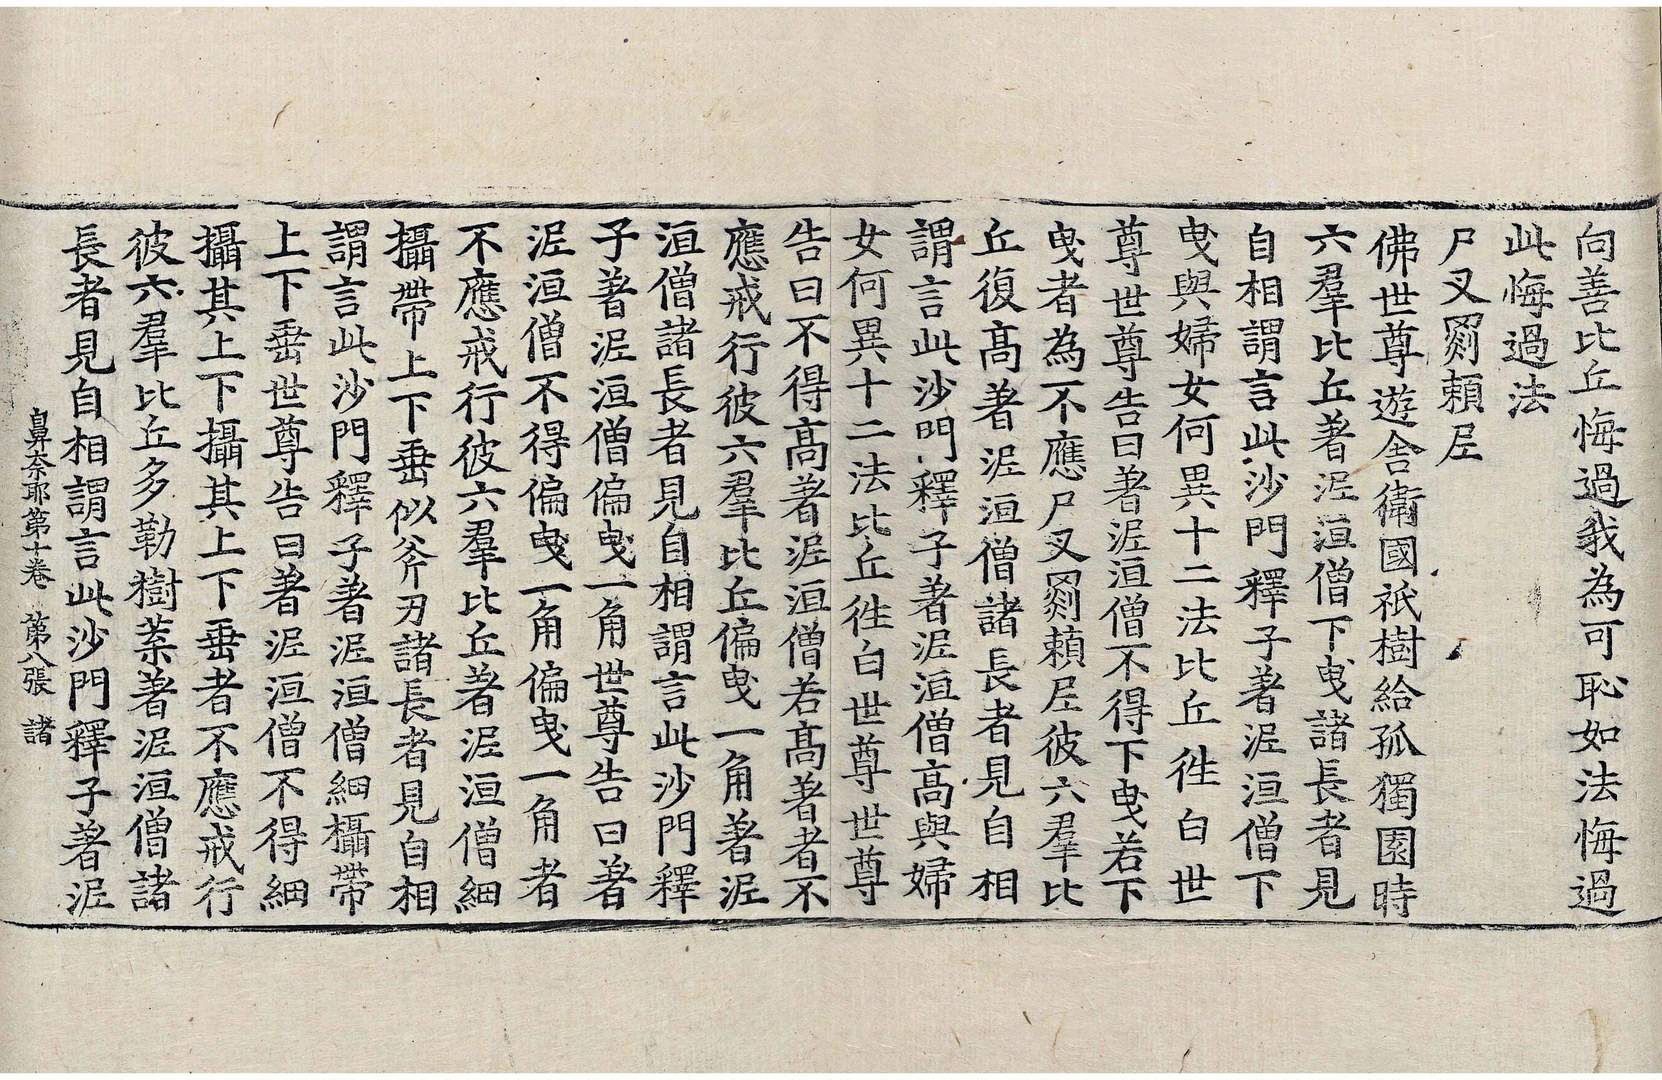 向善比丘悔過我為可恥如法悔過
此悔過法
尸叉罽賴尼
佛世尊遊舍衛國祇樹給孤獨園時
六羣比丘著泥洹僧下曳諸長者見
自相謂言此沙門釋子著泥洹僧下
曳與婦女何異十二法比丘徃白世
尊世尊告曰著泥洹僧不得下曳若下
曳者為不應尸叉罽賴尼彼六羣比
丘復髙著泥洹僧諸長者見自相
謂言此沙門釋子著泥洹僧髙與婦
女何異十二法比丘徃白世尊世尊
告曰不得髙著泥洹僧若髙著者不
應戒行彼六羣比丘偏曳一角著泥
洹僧諸長者見自相謂言此沙門釋
子著泥洹僧偏曳一角世尊告曰著
泥洹僧不得偏曳一角偏曳一角者
不應戒行彼六羣比丘著泥洹僧細
攝帶上下垂似斧刃諸長者見自相
謂言此沙門釋子著泥洹僧細攝帶
上下垂世尊告曰著泥洹僧不得細
攝其上下攝其上下垂者不應戒行
彼六羣比丘多勒樹葉著泥洹僧諸
長者見自相謂言此沙門釋子著泥
鼻奈耶第十卷 第八張 諸